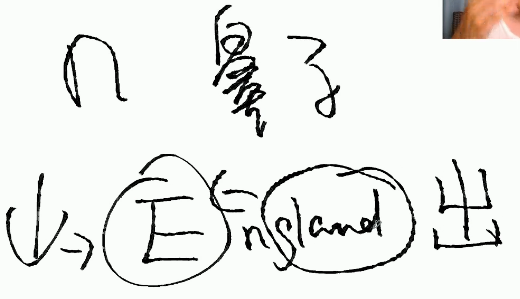 n 鼻子
E England 出